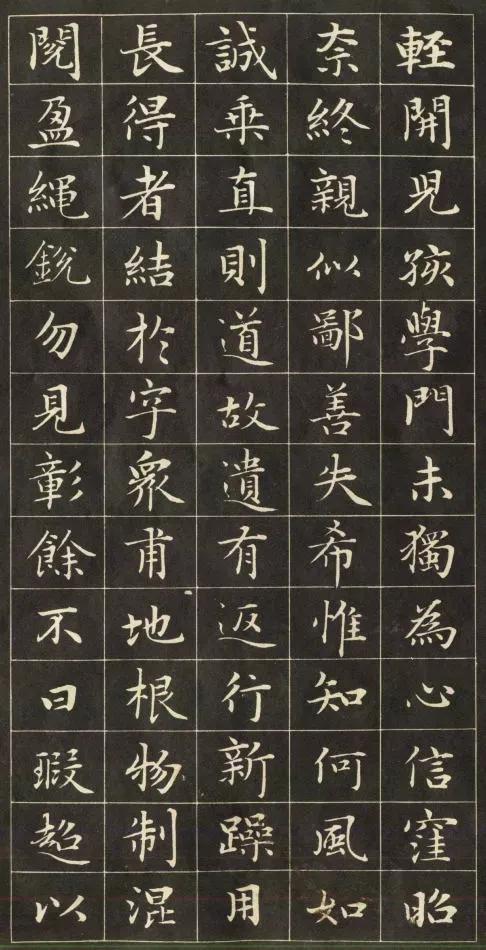 輊開児孩學門未獨為心信窪昭
奈終親似鄙善失希惟知何風如
誠乗直則道故遺有返行新躁用
長得者結於字衆甫地根物制混
閱盈繩銳勿見彰餘不曰瑕超以